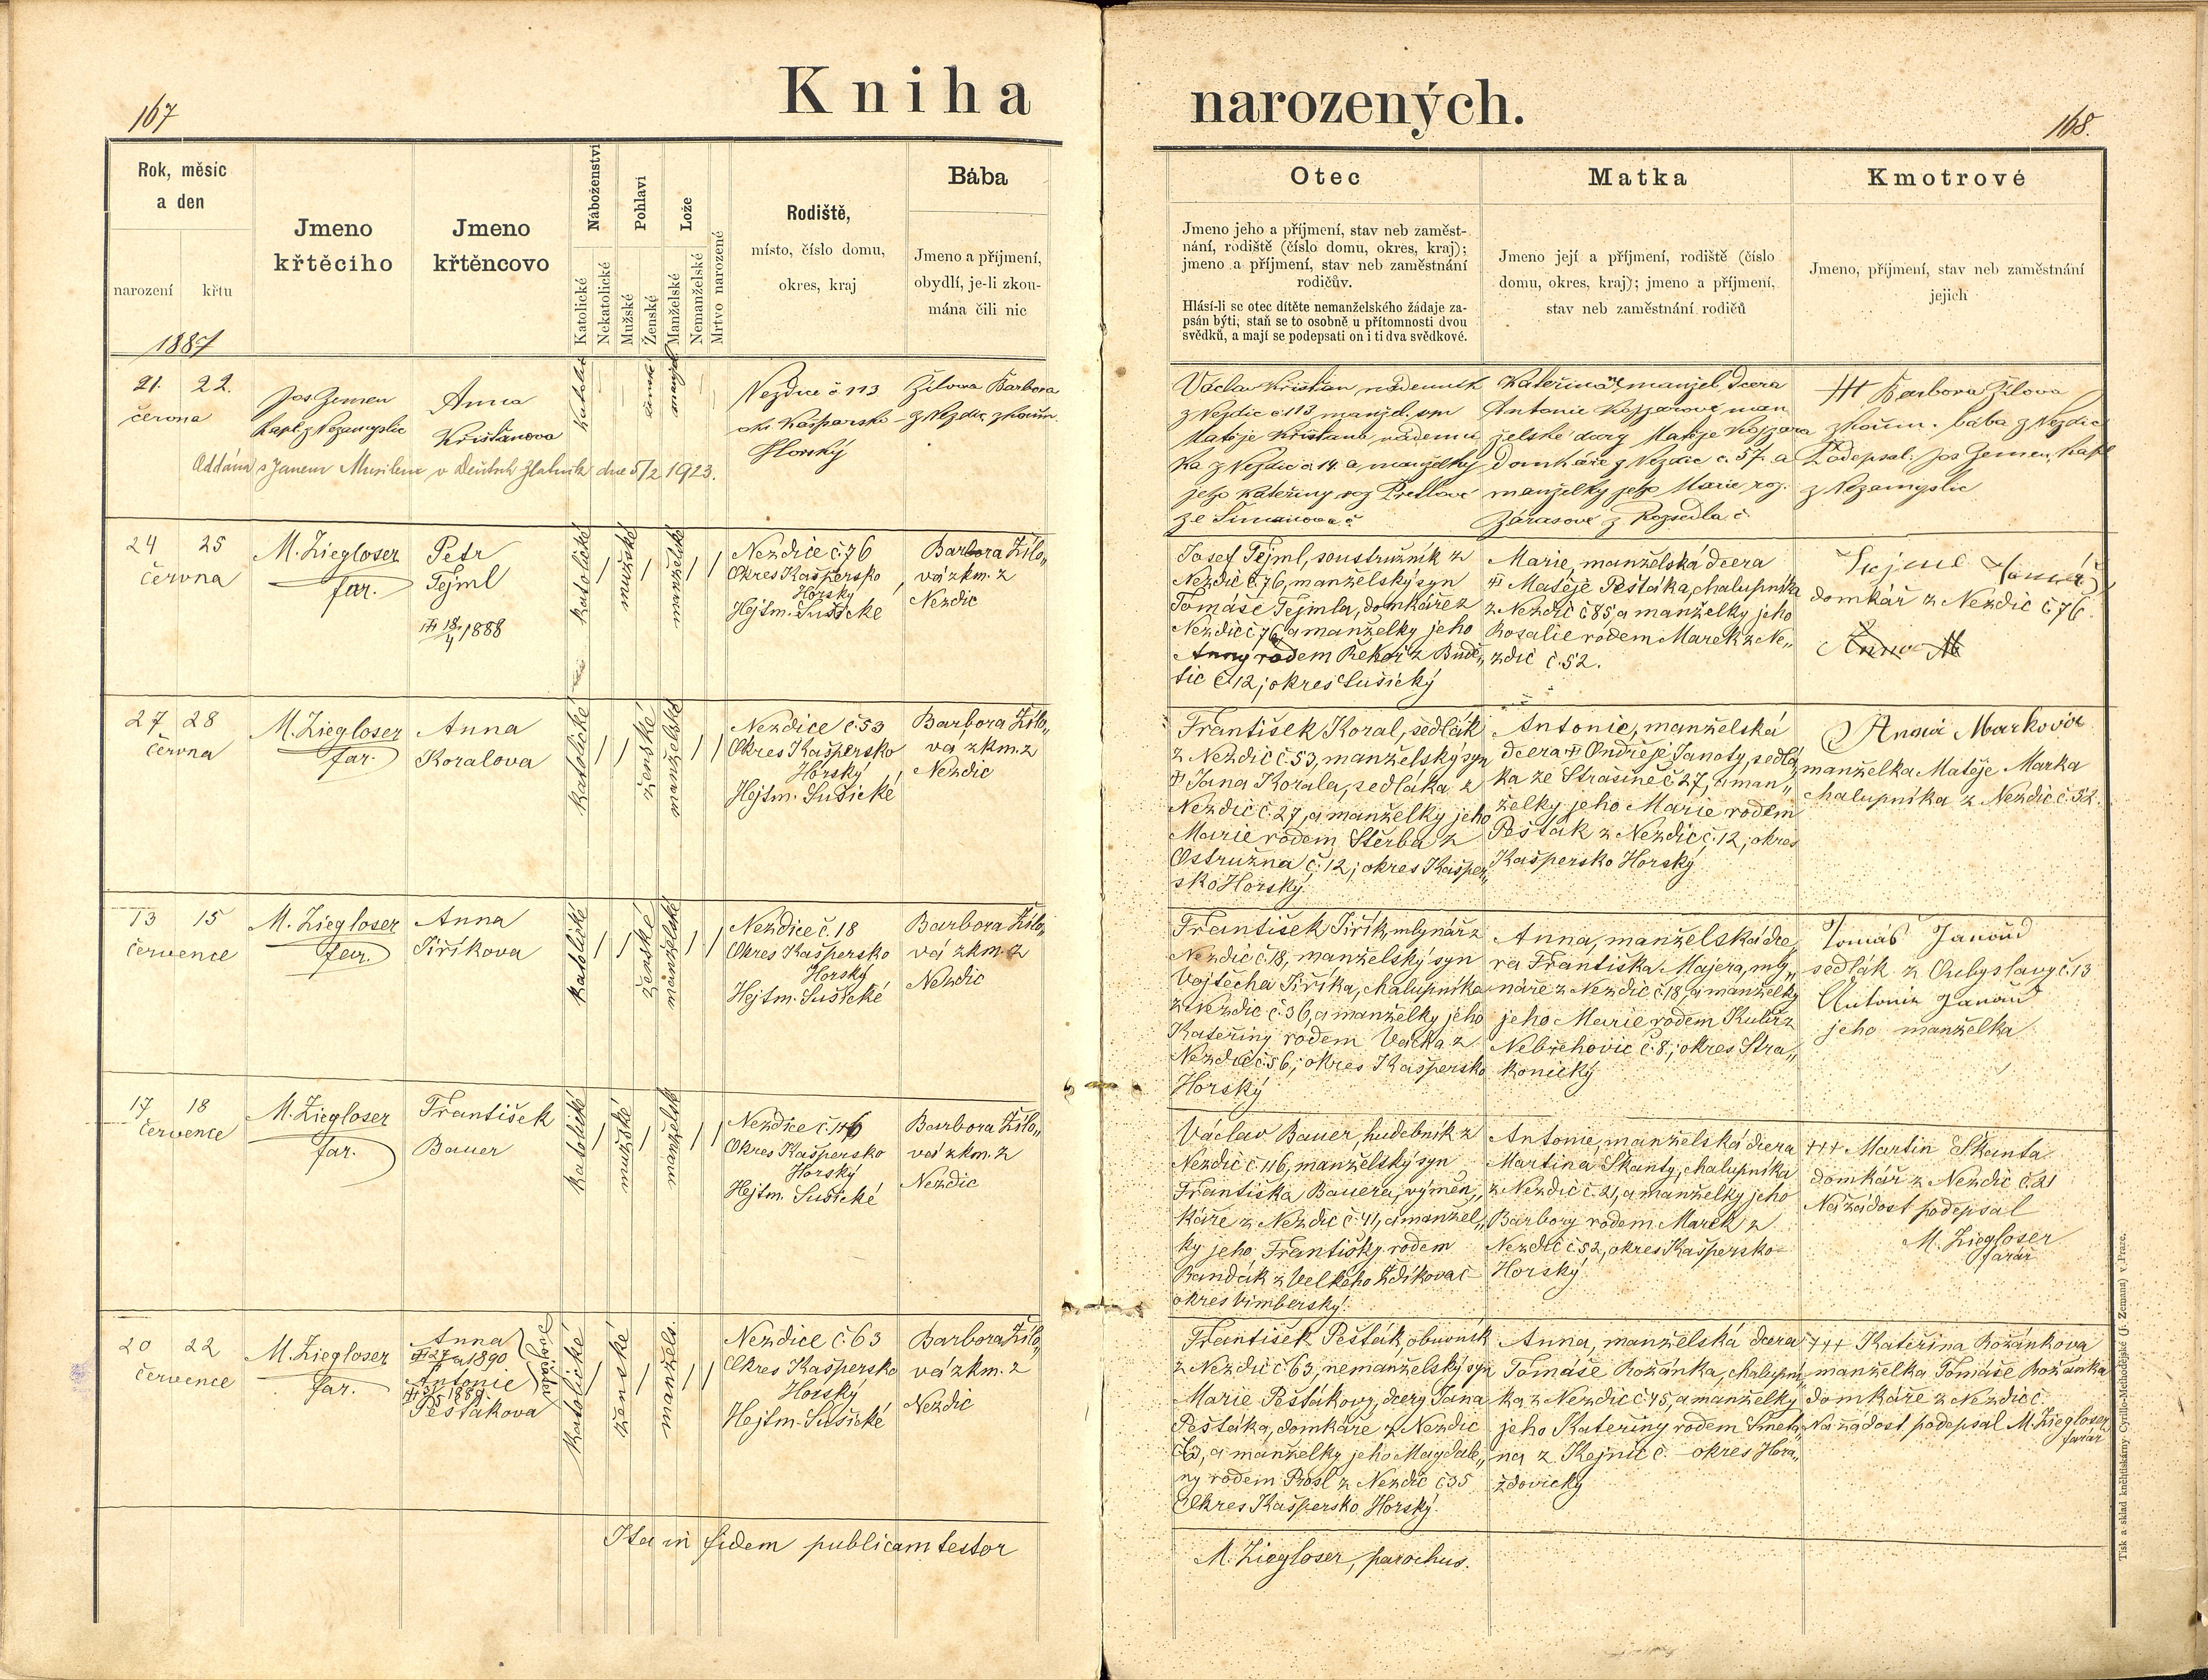 167
Kniha
narozených.
168.
Rok, měsíc
a den
narození křtu
1887
Jmeno
křtěcího
Jmeno
křtěncovo
Náboženství
Katolické
Nekatolické
Pohlaví
Mužské
Ženské
Lože
Manželské
Nemanželské
Mrtvo narozené
Rodiště,
místo, číslo domu,
okres, kraj
Bába
Jmeno a příjmení,
obydlí, je-li zkou-
mána čili nic
Otec
Jmeno jeho a příjmení, stav neb zaměst-
nání, rodiště (číslo domu, okres, kraj);
jmeno a příjmení, stav neb zaměstnání
rodičův.
Hlásí-li se otec dítěte nemanželského žádaje za-
psán býti, staň se to osobně u přítomnosti dvou
svědků, a mají se podepsati on i ti dva svědkové.
Matka
Jmeno její a příjmení, rodiště (číslo
domu, okres, kraj); jmeno a příjmení,
stav neb zaměstnání rodičů
Kmotrové
Jmeno, příjmení, stav neb zaměstnání
jejich
21. 22.
června
Jos Zemen
kapl. z Nezamyslic
Anna
Křišťanova
Oddána s Janem Musilem v dne 5/2 1923.
Nezdice č 113
okr. Kašparsko
Horský
Žilova Barbora
z Nezdic, zkouším.
Václav Křišťan, nádenník
z Nezdic č 113, manžel. syn
Matěje Křišťana, nádenní
ka z Nezdic č 14 a manželky
jeho Kateřiny roz
ze Šimanova č
Kateřina, manžel. dcera
Antonie Kojzarové man
želské dcery Matěje Kojzara
domkáře z Nezdic č. 57. a
manželky jeho Marie roz.
Zárasové z Rozsedla č
+++ Barbora Žilova
zkouším. baba z Nezdic
Podepsal: Jos Zemen, kapl
z Nezamyslic
24 25
června
M. Ziegloser
far.
Petr
Tejml
18/4 1888
katolické
mužské
manželské
Nezdice č. 76
Okres Kašpersko
Horský
Hejtm. Sušické
Barbora Žílo„
vá zkm. z
Nezdic
Josef Tejml, soustružník z
Nezdic č. 76, manželský syn
Tomáše Tejmla, domkáře z
Nezdic č 76, a manželky jeho
Anny rodem Řekoř z Budě„
tic č. 12; okres Sušický
Marie, manželská dcera
Matěje Pešťáka, chalupníka
z Nezdic č 85, a manželky jeho
Rosalie rodem Marek z Ne„
zdic č. 52.
Tejml Tomáš
domkář z Nezdic č. 76.
Anna M
27 28
června
M. Ziegloser
far.
Anna
Koralova
katolické
ženské
manželské
Nezdice č. 53
Okres Kašpersko
Horský
Hejtm. Sušické
Barbora Žílo„
vá zkm. z
Nezdic
František Koral, sedlák
z Nezdic č. 53, manželský syn
Jana Korala, sedláka z
Nezdic č. 27, a manželky jeho
Marie rodem Štěrba z
Ostružna č. 12; okres Kašper„
sko Horský.
Antonie, manželská
dcera Ondřeje Janoty, sedlá„
ka ze Strašině č 27, a man„
želky jeho Marie rodem
Pešťák z Nezdic č. 12; okres
Kašpersko Horský
Anna Markova
manželka Matěje Marka
chalupníka z Nezdic č. 52.
13 15
července
M. Ziegloser
far.
Anna
Jiříkova
katolické
ženské
manželské
Nezdice č. 18
Okres Kašpersko
Horský
Hejtm. Sušické
Barbora Žílo„
vá zkm. z
Nezdic
František Jiřík, mlynář z
Nezdic č. 18, manželský syn
Vojtěcha Jiříka, chalupníka
z Nezdic č. 36, a manželky jeho
Kateřiny rodem Vačka z
Nezdic č. 56; okres Kašpersko
Horský
Anna, manželská dce„
ra Františka Majera, mly„
náře z Nezdic č. 18, a manželky
jeho Marie rodem z
Nebřehovic č. 8; okres Stra„
konický
Tomáš Janouš
sedlák z č. 13
Antonie Janouš
jeho manželka
17 18
července
M. Ziegloser
far.
František
Bauer
katolické
mužské
manželsk
Nezdice č. 116
Okres Kašpersko
Horský
Hejtm. Sušické
Barbora Žílo„
vá zkm. z
Nezdic
Václav Bauer, hudebník z
Nezdic č. 116, manželský syn
Františka Bauera, výměn„
káře z Nezdic č. 41, a manžel„
ky jeho Františky rodem
Bandák z Velkého Zdíkova č
okres Vimberský.
Antonie, manželská dcera
Martina Skanty, chalupníka
z Nezdic č. 21, a manželky jeho
Barbory rodem Marek z
Nezdic č. 52, okres Kašpersko
Horský
+++ Martin Skanta
domkář z Nezdic č. 21
Na žádost podepsal
M. Ziegloser
farář
20 22
července
M. Ziegloser
far.
Anna
1890
Antonie
1887.
Pešťákova
Dvojčata
katolické
ženské
manžels.
Nezdice č. 63
Okres Kašpersko
Horský
Hejtm. Sušické
Barbora Žílo„
vá zkm. z
Nezdic
František Pešťák, obuvník
z Nezdic č. 63, nemanželský syn
Marie Pešťákovy, dcery Jana
Pešťáka, domkáře z Nezdic
č. 63, a manželky jeho Magdale„
ny rodem Prosl z Nezdic č 35
Okres Kašpersko Horský.
Anna, manželská dcera
Tomáše Rožánka, chalupní„
ka z Nezdic č. 45, a manželky
jeho Kateřiny rodem Smeta„
na z Kejnic č. okres Hora„
žďovický
+++ Kateřina Rožánkova
manželka Tomáše Rožánka
domkáře z Nezdic č.
Na žádost podepsal M. Ziegloser
farář
Ita in fidem publicam testor
M. Ziegloser, parochus.
Tisk a sklad knihtiskárny Cyrillo-Methodějské (J. Zeman) v Praze.